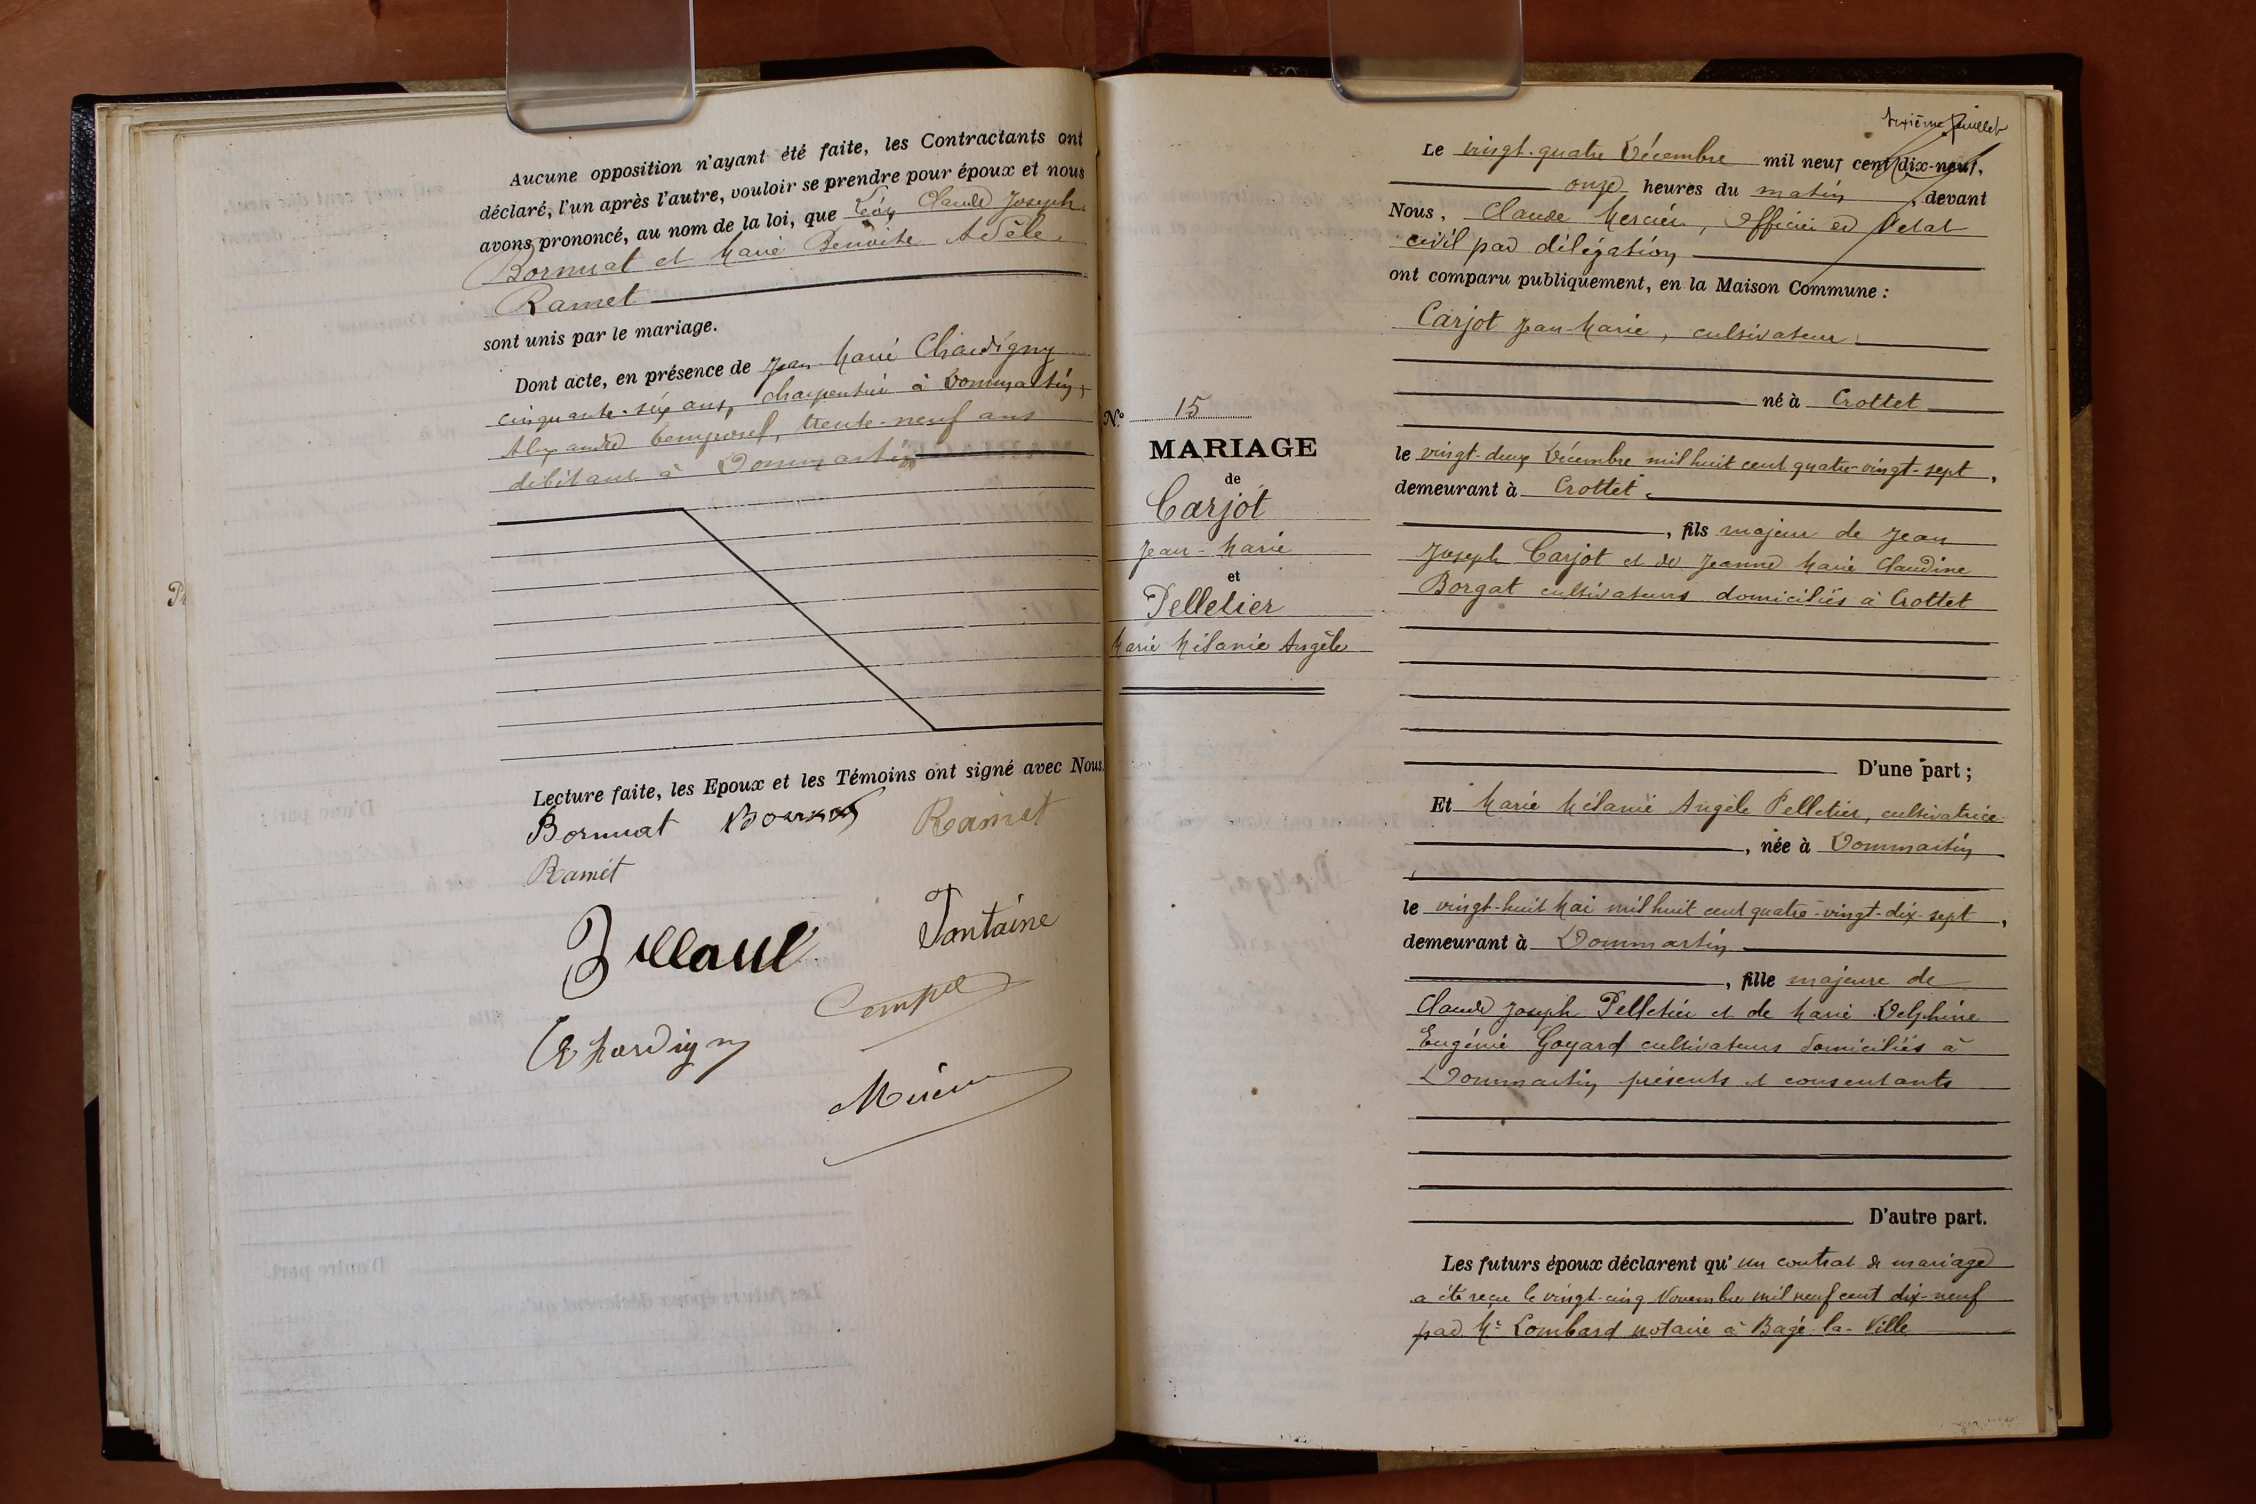 Aucune opposition n'ayant été faite, les Contractants ont
déclaré, l'un après l'autre, vouloir se prendre pour époux et nous
avons prononcé, au nom de la loi, que Léon Claude Joseph
Bornuat et Marie Benoite Adèle
Ramet
sont unis par le mariage.
Dont acte, en présence de Jean Marie Chardigny
cinquante-six ans, charpentier à Dommartin,
Alexandre Temporel, trente-neuf ans
débitant à Dommartin
Lecture faite, les Epoux et les Témoins ont signé avec Nous.
Bornuat Ramet
Ramet
Billoud Fontaine
Chardigny
Mercier
sixième feuillet
Le vingt-quatre Décembre mil neuf cent dix-neuf,
onze heures du matin, devant
Nous, Claude Mercier, officier de l'état
civil par délégation
ont comparu publiquement, en la Maison Commune :
Carjot Jean-Marie, cultivateur
né à Crottet
le vingt-deux Décembre mil huit cent quatre-vingt-sept,
demeurant à Crottet
, fils majeur de Jean
Joseph Carjot et de Jeanne Marie Claudine
Borgat cultivateurs domiciliés à Crottet
D'une part ;
N° 15
MARIAGE
de
Carjot
Jean-Marie
et
Pelletier
Marie Mélanie Angèle
Et Marie Mélanie Angèle Pelletier, cultivatrice
, née à Dommartin
le vingt-huit Mai mil huit cent quatre-vingt-dix-sept,
demeurant à Dommartin
, fille majeure de
Claude Joseph Pelletier et de Marie Delphine
Eugénie Goyard cultivateurs domiciliés à
Dommartin, présents et consentants
D'autre part.
Les futurs époux déclarent qu'un contrat de mariage
a été reçu le vingt-cinq Novembre mil neuf cent dix-neuf
par Me Lombard notaire à Bagé-la-Ville